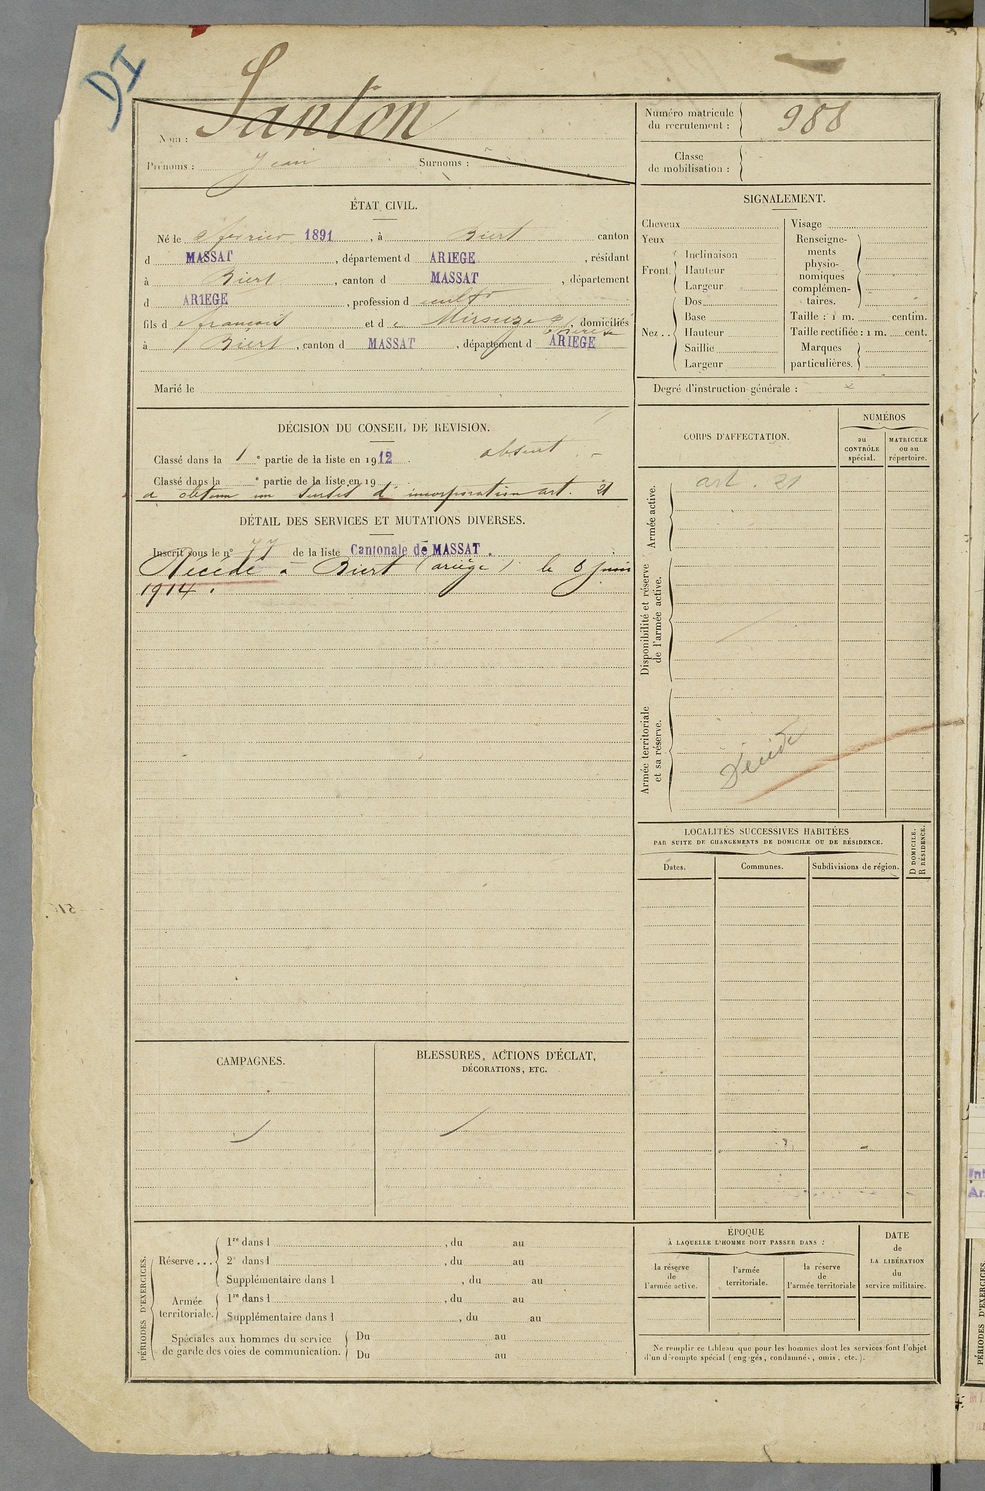 DI
Nom : Santon
Prénoms : Jean Surnoms :
Numéro matricule du recrutement : 988
Classe de mobilisation :
ÉTAT CIVIL.
Né le février 1891, à Biert canton
d MASSAT, département d ARIEGE, résidant
à Biert, canton d MASSAT, département
d ARIEGE, profession d cultr
fils d e françois et d e domiciliés
à Biert, canton d MASSAT, département d ARIEGE
Marié le
SIGNALEMENT.
Cheveux
Yeux
Front
Inclinaison
Hauteur
Largeur
Nez
Dos
Base
Hauteur
Saillie
Largeur
Visage
Renseignements physionomiques complémentaires.
Taille : 1 m. centim.
Taille rectifiée : 1 m. cent.
Marques particulières.
Degré d'instruction générale :
DÉCISION DU CONSEIL DE REVISION.
Classé dans la 1 e partie de la liste en 1912. absent
Classé dans la e partie de la liste en 19
a obtenu un sursis d'incorporation art. 21
DÉTAIL DES SERVICES ET MUTATIONS DIVERSES.
Inscrit sous le n° 77 de la liste Cantonale de MASSAT.
Décédé à Biert (ariège) le 6 juin
1914.
CORPS D'AFFECTATION.
NUMÉROS
au CONTRÔLE spécial.
MATRICULE ou au répertoire.
Armée active.
art. 21
Disponibilité et réserve de l'armée active.
Armée territoriale et sa réserve.
Décédé
LOCALITÉS SUCCESSIVES HABITÉES
PAR SUITE DE CHANGEMENTS DE DOMICILE OU DE RÉSIDENCE.
D DOMICILE.
R RÉSIDENCE.
Dates.
Communes.
Subdivisions de région.
CAMPAGNES.
BLESSURES, ACTIONS D'ÉCLAT,
DÉCORATIONS, ETC.
PÉRIODES D'EXERCICES.
Réserve ...
1re dans l , du au
2e dans l , du au
Supplémentaire dans l , du au
Armée territoriale.
1re dans l , du au
Supplémentaire dans l , du au
Spéciales aux hommes du service de garde des voies de communication.
Du au
Du au
ÉPOQUE
À LAQUELLE L'HOMME DOIT PASSER DANS :
la réserve de l'armée active.
l'armée territoriale.
la réserve de l'armée territoriale
DATE de LA LIBÉRATION du service militaire.
Ne remplir ce tableau que pour les hommes dont les services font l'objet
d'un décompte spécial (engagés, condamnés, omis, etc.).
PÉRIODES D'EXERCICES